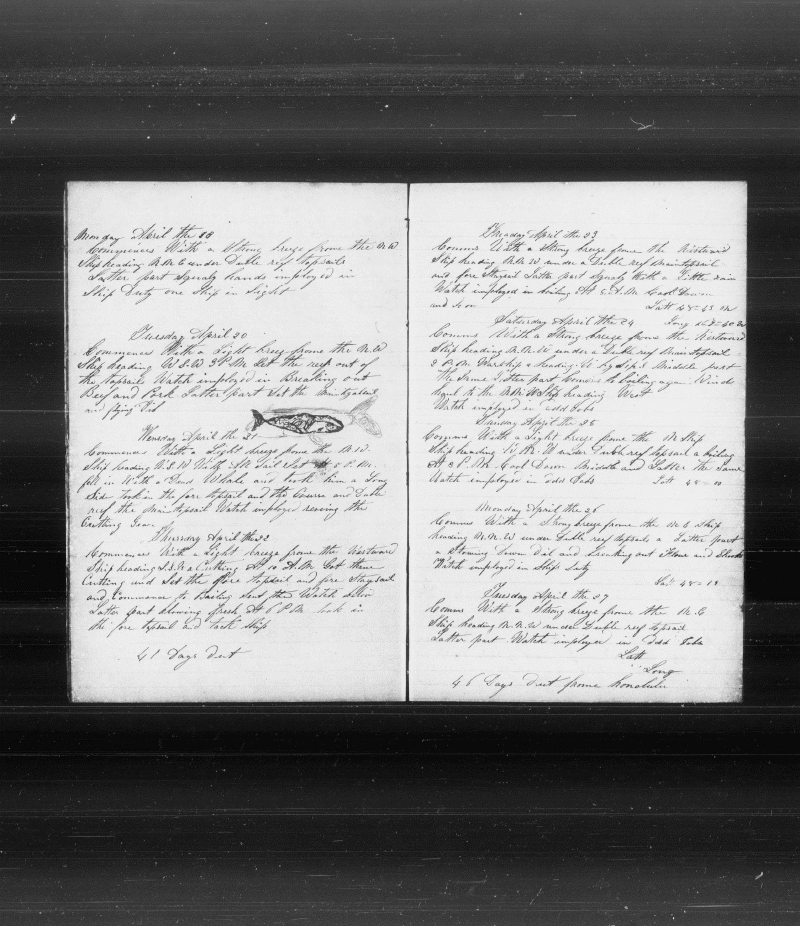 Monday April the 18
Commences With a Strong breeze frome the N W
Ship heading N.N.E under Duble reef topsails
Latter part Squaly hands imployed in
Ship Duty one Ship in Sight
Tuesday April 20
Commences With a Light breeze frome the N.W
Ship heading W.S.W 2 P.M Let the reef out of
the topsails Watch imployed in Breaking out
Beef and Pork Latter part Set the
and flying Jib
Wensday April the 21
Commences With a Light breeze frome the N.W.
Ship heading W.S.W With All Sail Set At 5 P.M.
fell in With a Dead Whale and took him a Long
Side took in the fore topsail and the Courses and Duble
reef the Maintopsail Watch imployed
Cutting Gear.
Thursday April the 22
Commences With a Light breeze frome the Westward
Ship heading S.S.W a Cutting At 10 A.M Got threw
Cutting and Set the fore topsail and fore Staysail
and Commence to Boiling Sent the Watch below
Latter part blowing fresh At 6 P.M took in
the fore topsail and tack Ship
41 Days Out
April the 23
Comms With a Strong breeze frome the Westward
Ship heading N.N.W under a Duble reef Maintopsail
and fore Staysail Latter part Squaly With a Little rain
Watch imployed in boiling At 5 A.M Cool Down
and So on Latt 48-43 N
Saturday April the 24 Long
Comms With a Strong breeze frome the Westward
Ship heading N.N.W under a Duble reef Maintopsail
2 P.M Ware Ship a heading Middle part
the Same Latter part Comms to boiling again Wind
to the N.N.W Ship heading West
Watch imployed in odd Jobs
Sunday April the 25
Comms With a Light breeze frome the N Ship
heading W.N.W under Duble reef topsail a boiling
At 8 P.M. Cool Down Middle and Latter the Same
Watch imployed in odd Jobs Latt 48-10
Monday April the 26
Comms With a Strong breeze frome the N.E Ship
heading N.N.W under Duble reef topsails a Latter part
a Stowing Down Oil and Breaking out Flour and
Watch imployed in Ship Duty
Latt 48-18
Tuesday April the 27
Comms With a Strong breeze frome the N.E
Ship heading N.N.W under Duble reef topsail
Latter part Watch imployed in odd Jobs
Latt
Long
46 Days Out frome Honolulu